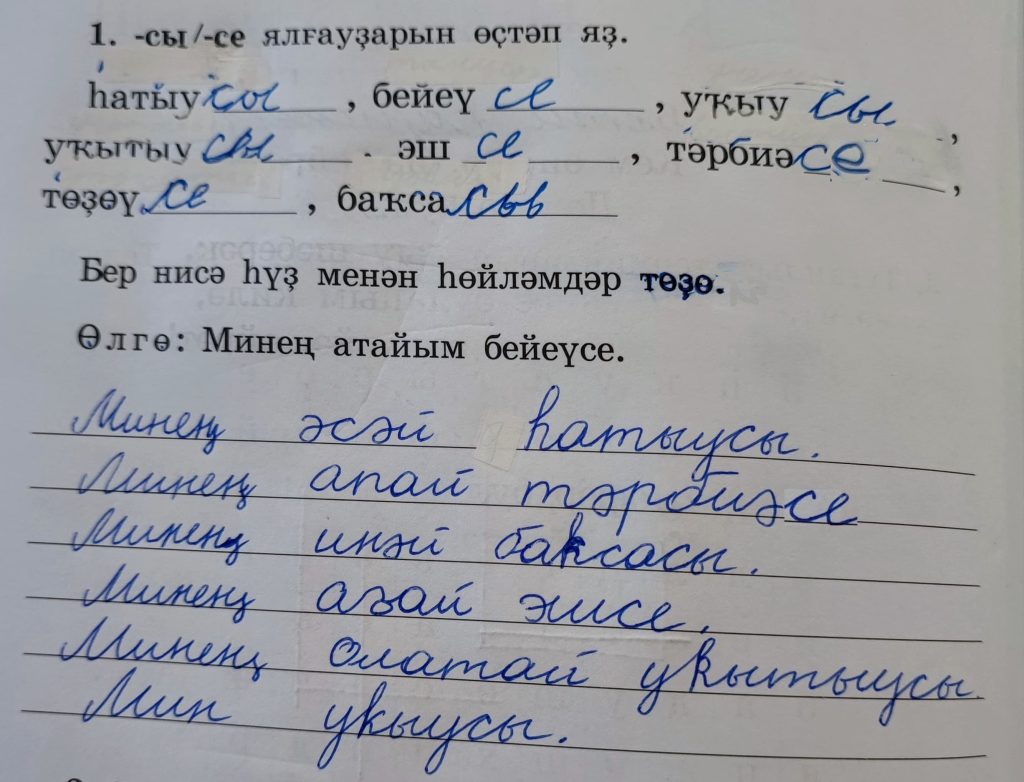 1. -сы/-се ялғауҙарын өҫтәп яҙ.
һатыусы, бейеүсе, уҡыусы,
уҡытыусы. эшсе, тәрбиәсе,
төҙөүсе, баҡсасы
Бер нисә һүҙ менән һөйләмдәр төҙө.
Өлгө: Минең атайым бейеүсе.
Минең әсәй һатыусы.
Минең апай тәрбиәсе
Минең инәй баҡсасы.
Минең ағай эшсе.
Минең олатай уҡытыусы.
Мин уҡыусы.